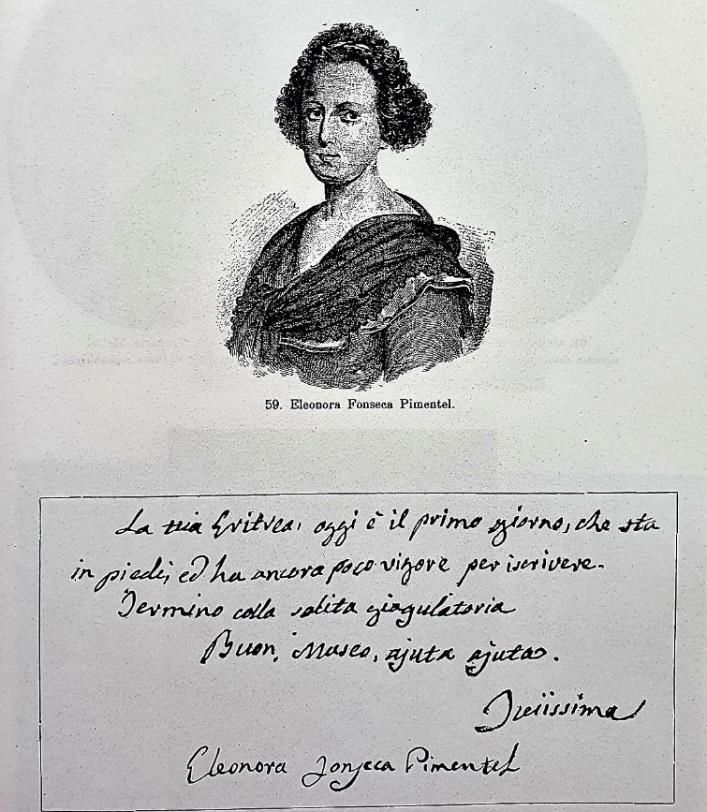 59. Eleonora Fonseca Pimentel.
La tua Eritrea, oggi è il primo giorno, che sta
in piedi, ed ha ancora poco vigore per iscrivere.
Termino colla solita giagulatoria
Buon, Museo, ajuta ajuta.
Eleonora Fonseca Pimentel